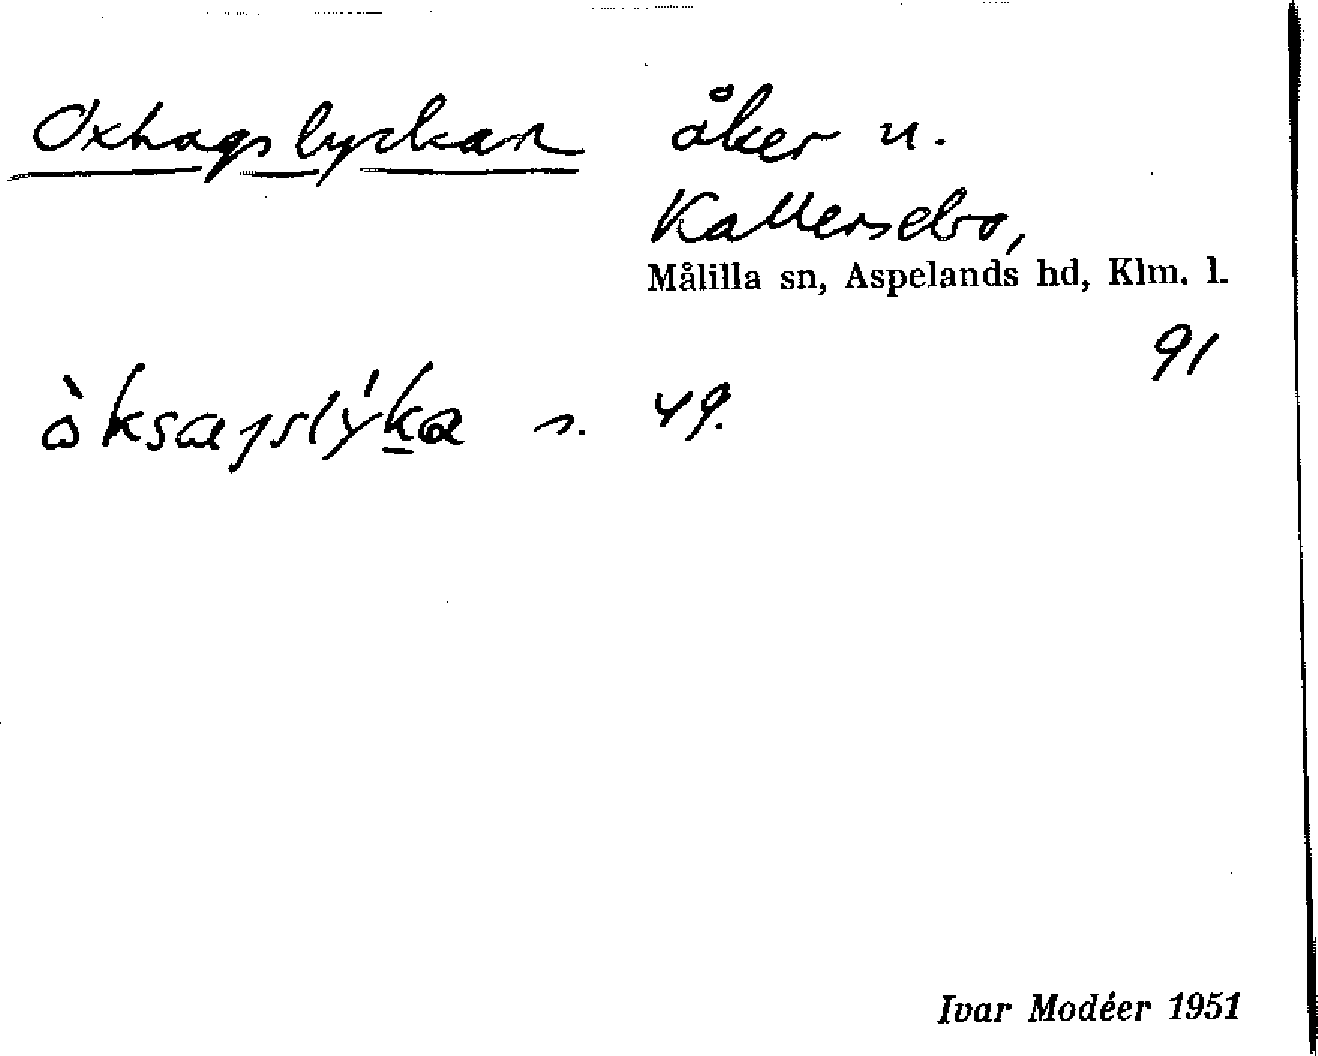 Oxhagslyckan åker u.
Kallersebo,
Målilla sn, Aspelands hd, Klm. l.
91
s. 49.
Ivar Modéer 1951